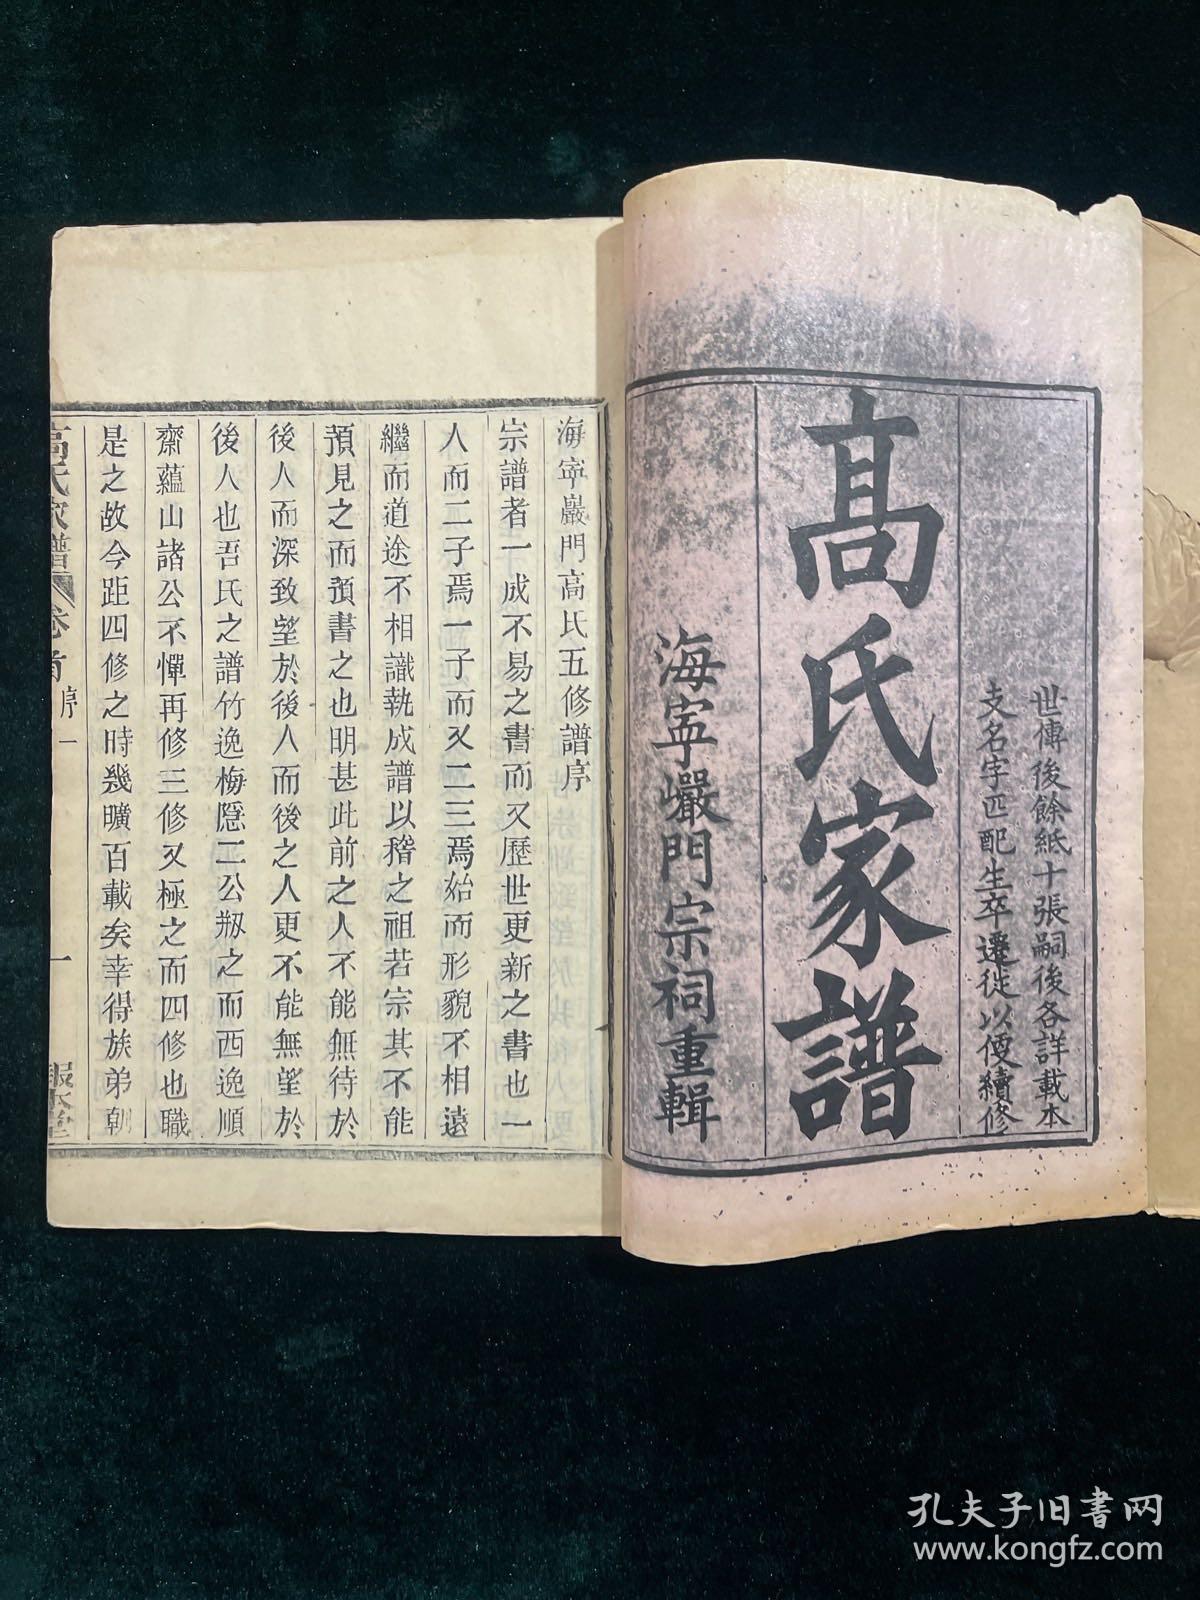 世傳後餘紙十張嗣後各詳載本
支名字匹配生卒遷徙以便續修
高氏家譜
海寧巖門宗祠重輯
海寧巖門高氏五修譜序
宗譜者一成不易之書而又歷世更新之書也一
人而二子焉一子而又二三焉始而形貌不相遠
繼而道途不相識執成譜以稽之祖若宗其不能
預見之而預書之也明甚此前之人不能無待於
後人而深致望於後人而後之人更不能無望於
後人也吾氏之譜竹逸梅隱二公剏之而西逸順
齋蘊山諸公不憚再修三修又極之而四修也職
是之故今距四修之時幾曠百載矣幸得族弟朝
高氏家譜 卷首 序 一 一 報本堂
孔夫子旧书网
www.kongfz.com